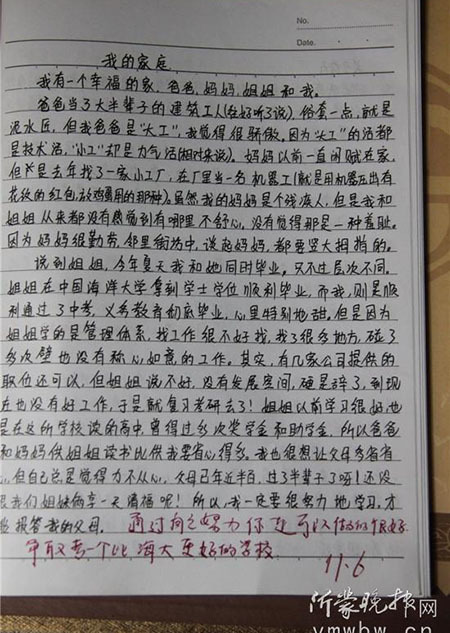 No.
Date.
我的家庭
我有一个幸福的家,爸爸,妈妈,姐姐和我。
爸爸当了大半辈子的建筑工人(在好听了说),俗套一点,就是
泥水匠,但我爸爸是“大工”,我觉得很骄傲。因为“大工”的活都
是技术活,“小工”却是力气活(相对来说)。妈妈以前一直闲赋在家,
但是去年找了一家小工厂,在厂里当一名机器工(就是用机器压出有
花纹的红包,放鸡蛋用的那种)。虽然我的妈妈是个残疾人,但是我和
姐姐从来都没有感觉到有哪里不舒心,没有觉得那是一种羞耻。
因为妈妈很勤劳,邻里街坊中,谈起妈妈,都要竖大拇指的。
说到姐姐,今年夏天我和她同时毕业,只不过层次不同。
姐姐在中国海洋大学拿到学士学位顺利毕业,而我,则是顺
利通过了中考,义务教育们毕业,心里特别地甜,但是因为
姐姐学的是管理体系,找工作很不好找,找了很多地方,碰了
多次壁也没有称心如意的工作。其实,有几家公司提供的
职位还可以,但姐姐说不好,没有发展空间,硬是辞了,到现
在也没有好工作,于是就复习考研去了!姐姐以前学习很好,也
是在这所学校读的高中,曾得过多次奖学金和助学金,所以爸爸
和妈妈供姐姐读书比供我要省心得多。我也很想让父母多省省
心,但自己总是觉得力不从心,父母已年近半百,过了半辈子了呀!还没
跟我们姐妹俩享一天清福呢!所以,我一定要很努力地学习,才
能报答我的父母。 通过自己努力你还可以做的很好
争取考一个比海大更好的学校
11.6
沂蒙晚报网
ymwbw.cn